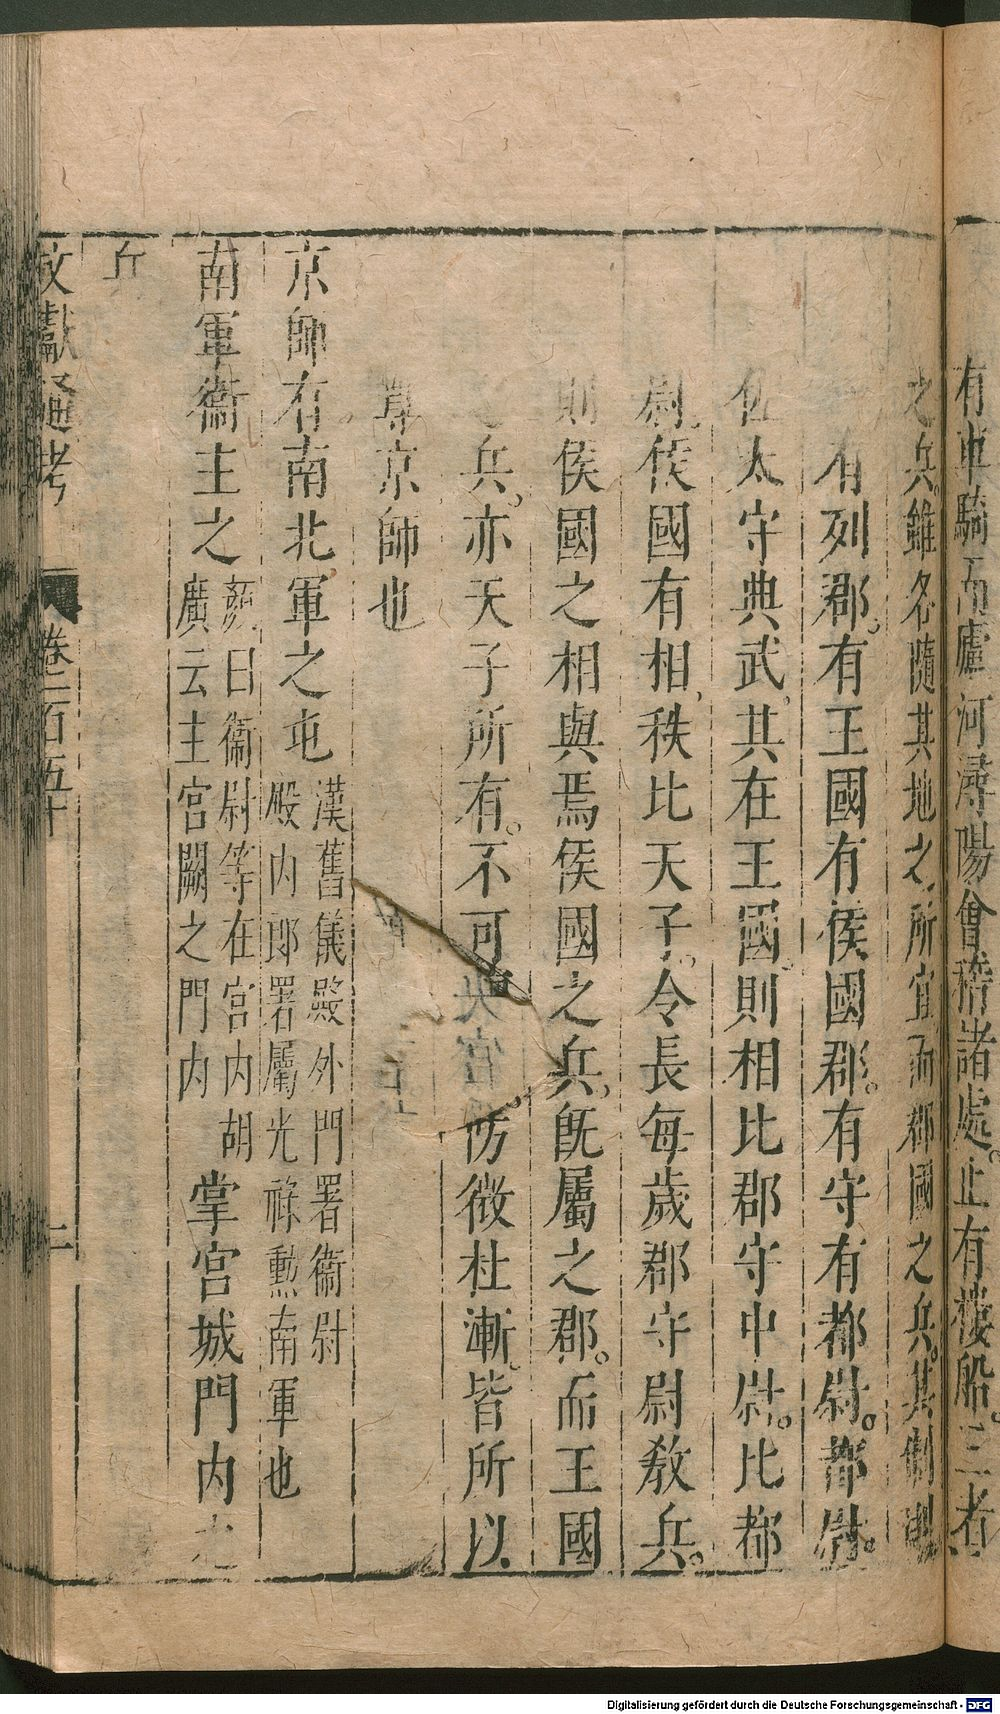 有車騎而廬河潯陽會稽諸處止有樓船三者
之兵雖各隨其地之所宜而郡國之兵其制則
有列郡有王國有侯國郡有守有都尉都尉
佐太守典武其在王國則相比郡守中尉比都
尉侯國有相秩比天子令長每歲郡守尉教兵
則侯國之相與焉侯國之兵既屬之郡而王國
兵亦天子所有不可 防微杜漸皆所以
尊京師也
京師有南北軍之屯漢舊儀殿外門署衞尉
殿内郎署屬光祿勳南軍也
南軍衞主之顏曰衞尉等在宮内胡
廣云主宮闕之門内掌宮城門内之
兵
文獻通考 卷一百五十 二
Digitalisierung gefördert durch die Deutsche Forschungsgemeinschaft - DFG